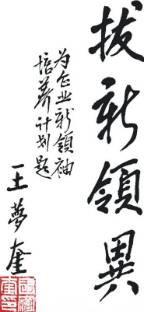 拔新領異
为企业新领袖
培养计划题
王夢奎